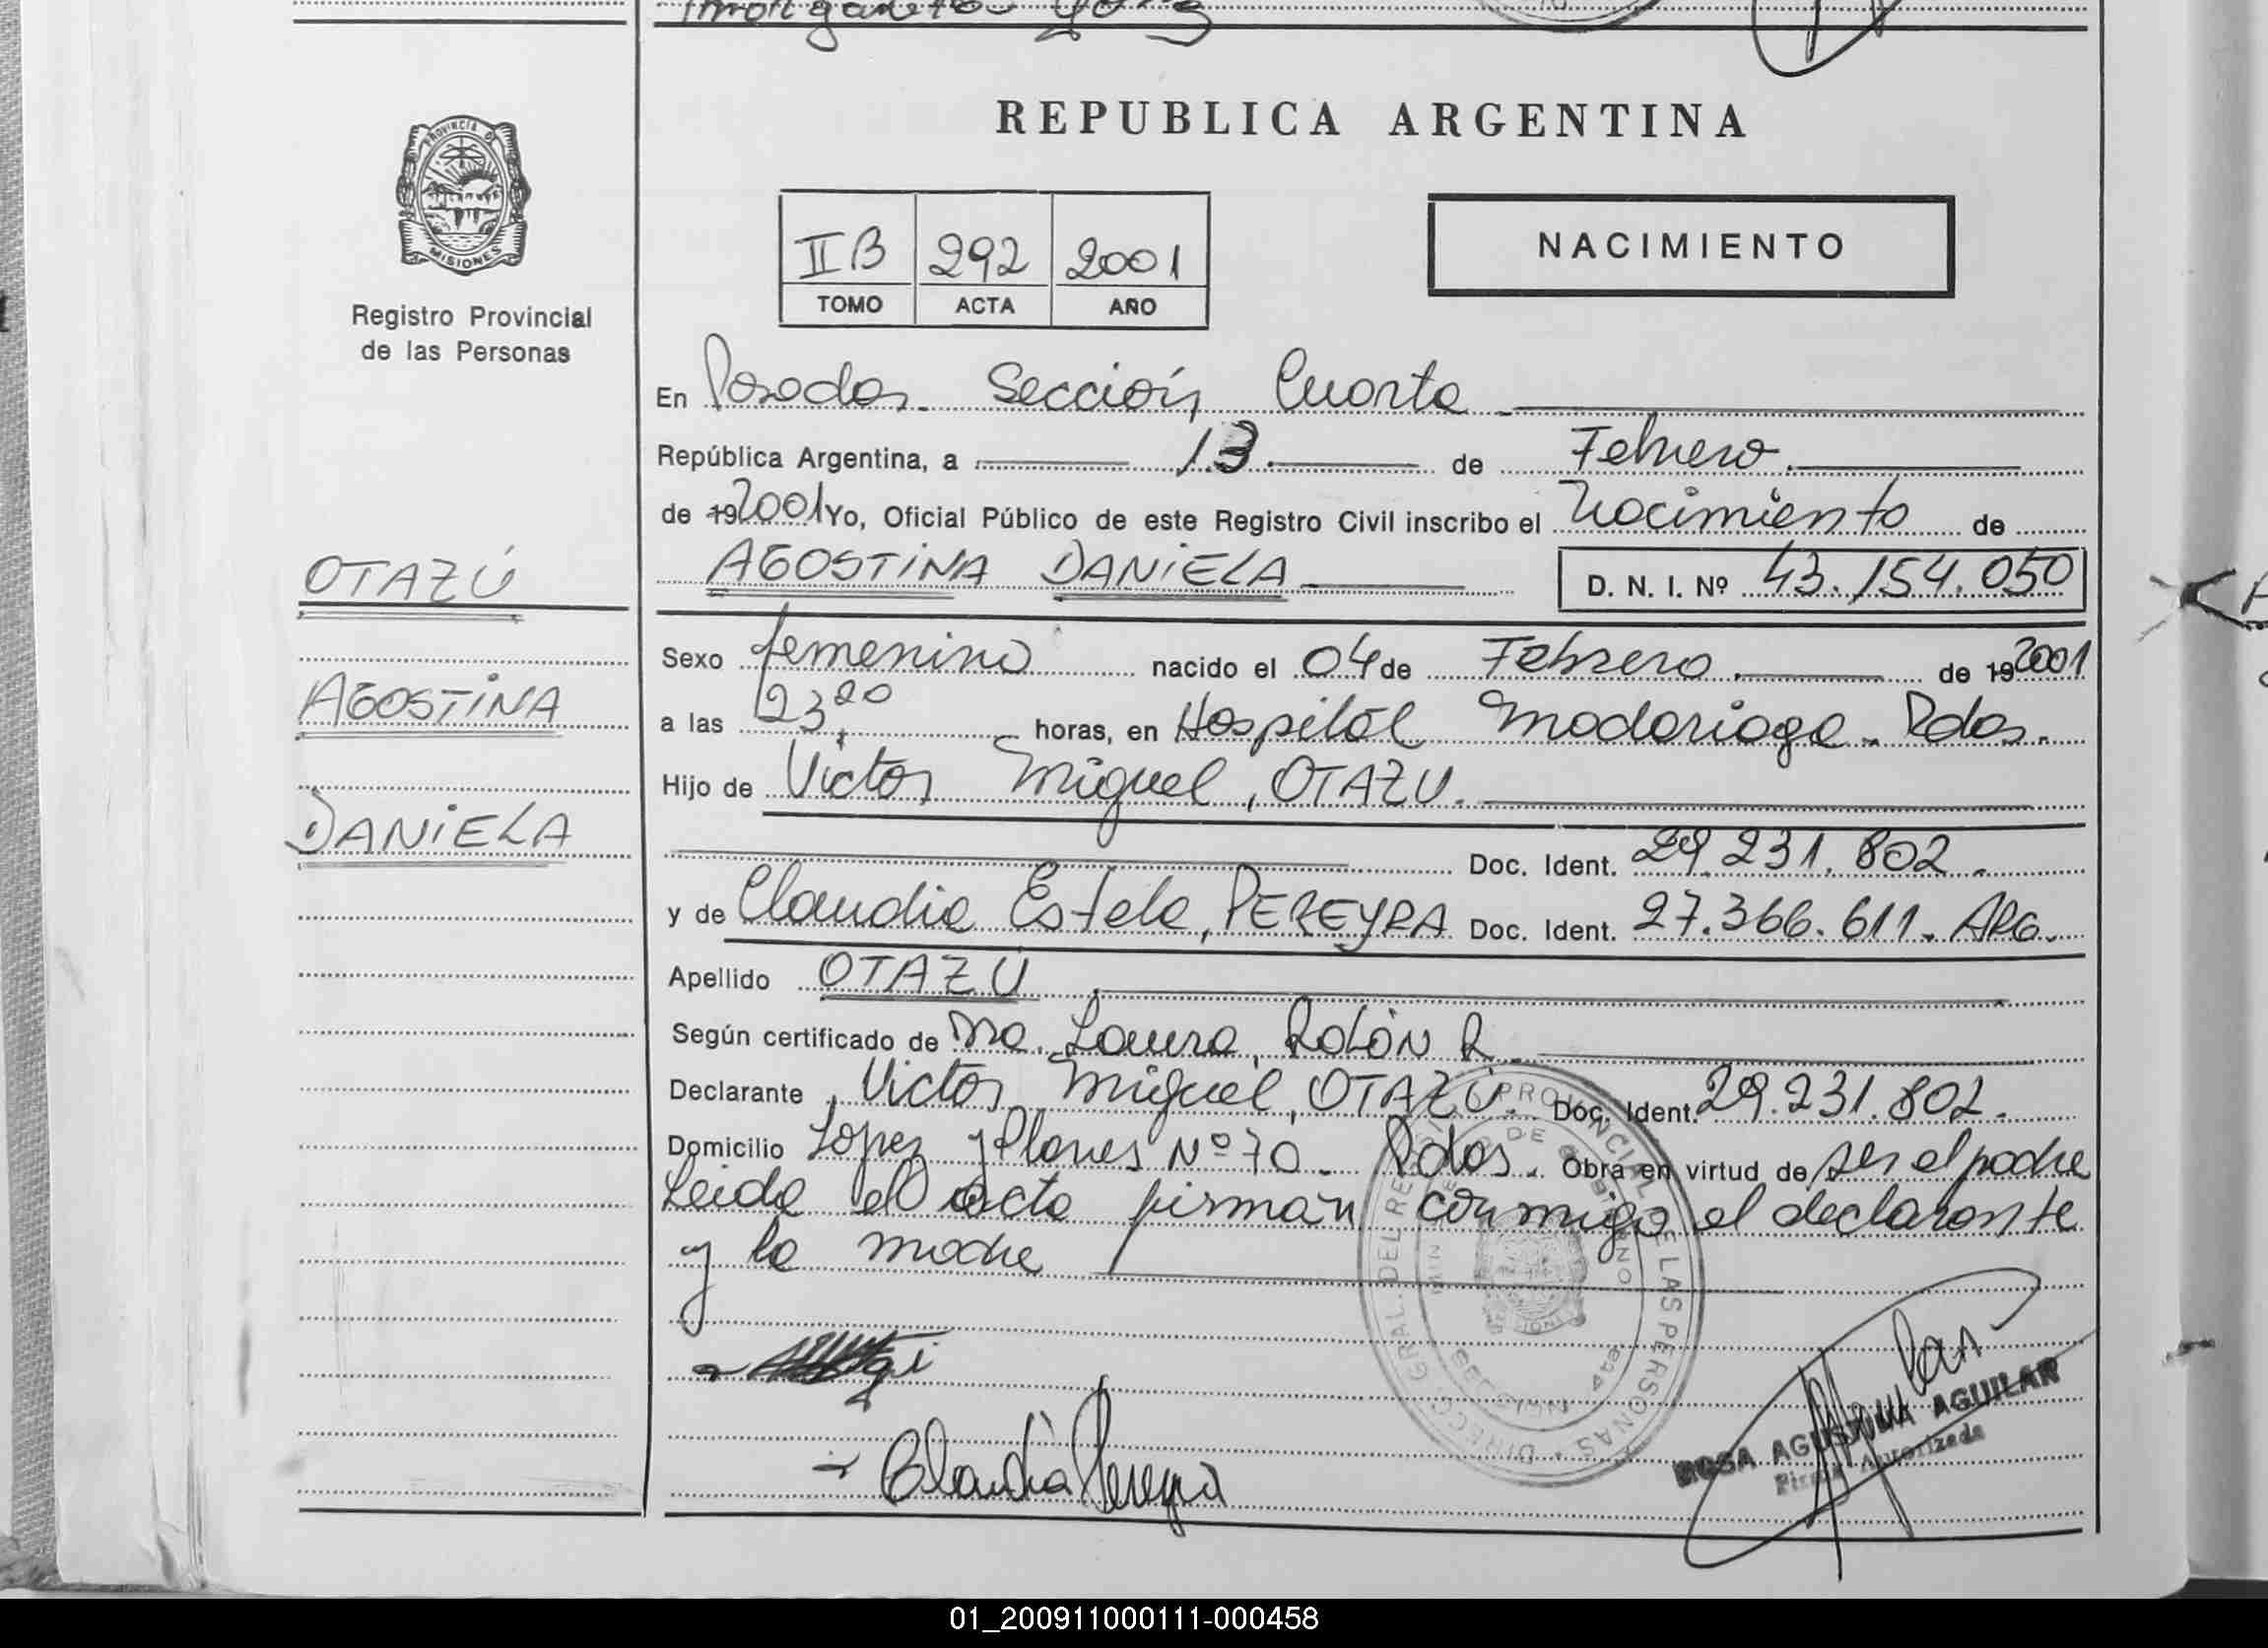 REPUBLICA ARGENTINA
PROVINCIA DE
MISIONES
Registro Provincial
de las Personas
II B 292 2001
TOMO ACTA AÑO
NACIMIENTO
En Posadas. Sección Cuarta
República Argentina, a 13 de Febrero.
de 19 2001 Yo, Oficial Público de este Registro Civil inscribo el Nacimiento de
AGOSTINA DANIELA D. N. I. Nº 43.154.050
OTAZÚ
AGOSTINA
DANIELA
Sexo femenino nacido el 04 de Febrero. de 19 2001
a las 23,20 horas, en Hospital Madariaga. Pdas.
Hijo de Victor Miguel, OTAZU.
Doc. Ident. 29.231.802.
y de Claudia Estela, PEREYRA Doc. Ident. 27.366.611. ARG.
Apellido OTAZÚ
Según certificado de Dra. Laura, ROLÓN R.
Declarante Victor Miguel, OTAZÚ. Doc. Ident. 29.231.802.
Domicilio Lopez y Planes Nº 70. Pdas. Obra en virtud de ser el padre
Leida el acta firman conmigo el declarante
y la madre
Claudia Pereyra
DIRECC. GRAL. DEL REGISTRO PROVINCIAL DE LAS PERSONAS
ROSA AGUSTINA AGUILAR
Firma Autorizada
01_200911000111-000458